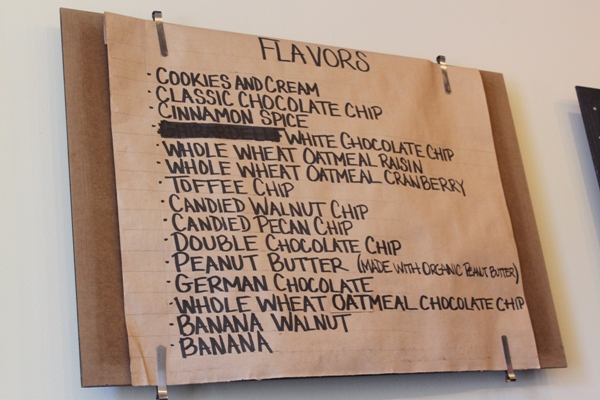 FLAVORS
· COOKIES AND CREAM
· CLASSIC CHOCOLATE CHIP
· CINNAMON SPICE
· WHITE CHOCOLATE CHIP
· WHOLE WHEAT OATMEAL RAISIN
· WHOLE WHEAT OATMEAL CRANBERRY
· TOFFEE CHIP
· CANDIED WALNUT CHIP
· CANDIED PECAN CHIP
· DOUBLE CHOCOLATE CHIP
· PEANUT BUTTER (MADE WITH ORGANIC PEANUT BUTTER)
· GERMAN CHOCOLATE
· WHOLE WHEAT OATMEAL CHOCOLATE CHIP
· BANANA WALNUT
· BANANA